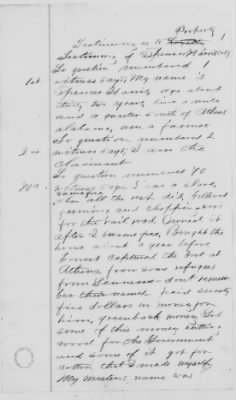 Property
Testimony as to Loyalty 1
Testimony of Spencer Harris
To question numbered 1
1st witness says, My name is
Spencer Harris, age about
sixty two years, live a mile
and a quarter south of Athens
Alabama, am a farmer
To question numbered 2
2nd witness says, I am the
Claimant
To question numbered 40
40th witness says I was a slave,
became free
when all the rest did, followed
farming and chopping
for the rail road. Owned it
after I became free, I bought the
horse about a year before
Forrest captured the Fort at
Athens, from some refugees
from Tennessee - don't remem
ber their names. paid seventy
five dollars in money for
him, greenback money. Got
some of this money cutting
wood for the Government
and some of it got for
cotton that I made myself
My master's name was